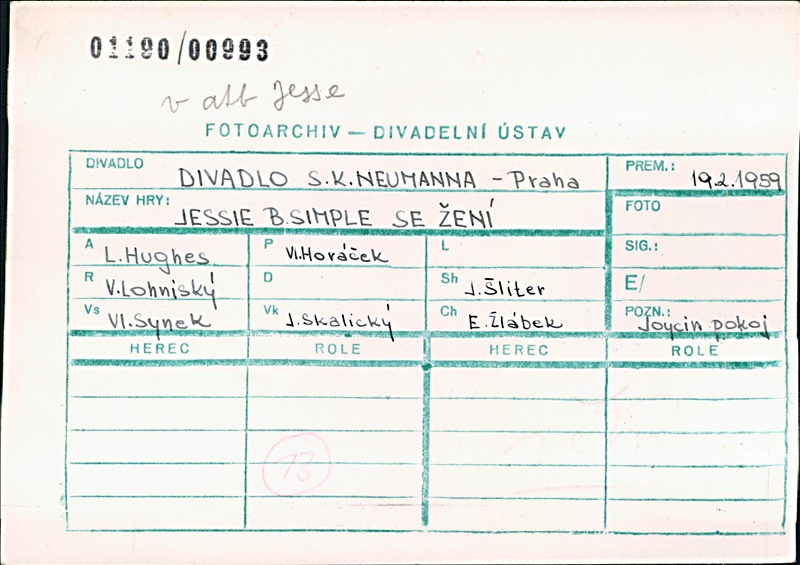 01190/00993
v alb Jesse
FOTOARCHIV — DIVADELNÍ ÚSTAV
DIVADLO DIVADLO S.K.NEUMANNA - Praha
PREM.: 19.2.1959
NÁZEV HRY: JESSIE B.SIMPLE SE ŽENÍ
FOTO
A L.Hughes P Vl.Horáček L SIG.:
R V.Lohniský D Sh J.Šliter E/
Vs Vl.Synek Vk J.Skalický Ch E.Žlábek POZN.: Joycin pokoj
HEREC ROLE HEREC ROLE
13